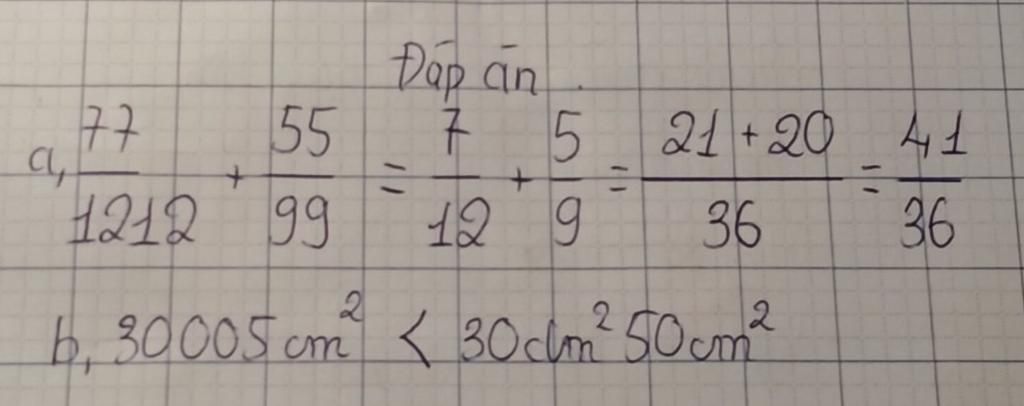 Đáp án.
a, 77/1212 + 55/99 = 7/12 + 5/9 = (21 + 20)/36 = 41/36
b, 30005cm² < 30dm² 50cm²